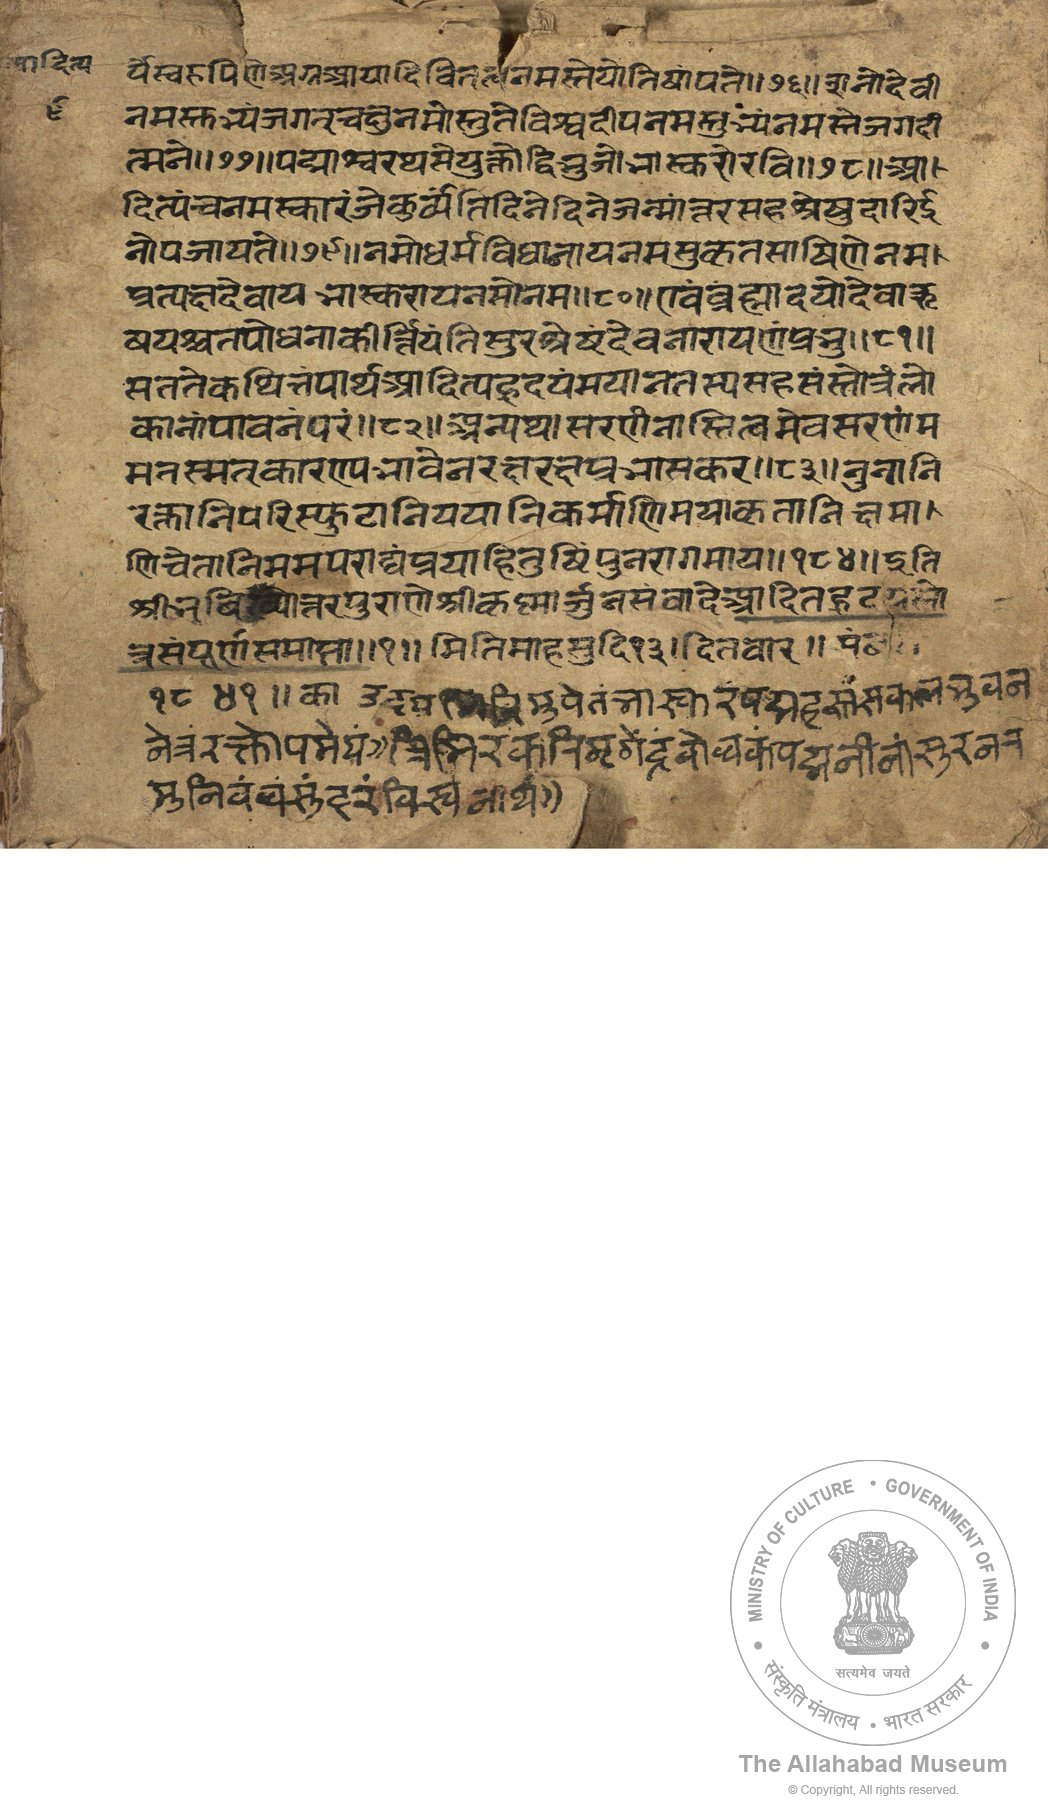 आदित्य
९
र्यस्वरूपिणेअग्नआयादिवितत्वनमस्तेयोतिषांपते॥७६॥शनोदेवी
नमस्तुभ्यंजगत्चक्षुनमोस्तुतेविश्वदीपनमस्तुभ्यंनमस्तेजगदी
त्मने॥७७॥पद्माश्वरथसंयुक्तोद्विभुजोभास्करोरवि॥७८॥आ।
दित्यंचनमस्कारंजेकुर्व्यंतिदिनेदिनेजन्मांत्तरसहश्रेषुदारिर्द्द
नोपजायते॥७९॥नमोधर्मविधानायनमसुकृतसाषिणेनम।
प्रत्यक्षदेवायभास्करायनमोनम॥८०॥एवंब्रंह्मादयोदेवाऋ
षयश्चतपोधनाकीर्त्तियंतिसुरश्रेष्ठंदेवनारायणंप्रभु॥८१॥
मततेकथित्तंपार्थआदित्यहृदयंमयानतस्यसहसंस्तोत्रंलो
कानांपावनंपरं॥८२॥अन्यथासरणीनास्तित्वमेवसरणंम
मतस्मत्कारण्यभावेनरक्षरक्षप्रभासकर॥८३॥नुनानि
रक्तानिपरिस्फुटानिययानिकर्माणिमयाकृतानिक्षमा।
णिचैतानिममपराद्यंप्रयाहितुष्टिंपुनरागमाय॥१८४॥इति
श्रीभविष्योत्तरपुराणेश्रीकृष्णार्जुनसंवादेआदितह्रदयस्तो
त्रसंपूर्णसमाप्ता॥१॥मितिमाहसुदि१३।दितवार॥ पंठ
१८४१॥का भुपेतंभास्करंपद्महस्तंसकलभुवन
नेत्रंरक्तोपमेयं॥तिमिरकरिमृगेंद्रंबोधकंपद्मनीनांसुरनत्र
मुनिवंद्यंसुंदरंविस्वनाथं॥
MINISTRY OF CULTURE • GOVERNMENT OF INDIA
सत्यमेव जयते
संस्कृति मंत्रालय • भारत सरकार
The Allahabad Museum
© Copyright, All rights reserved.